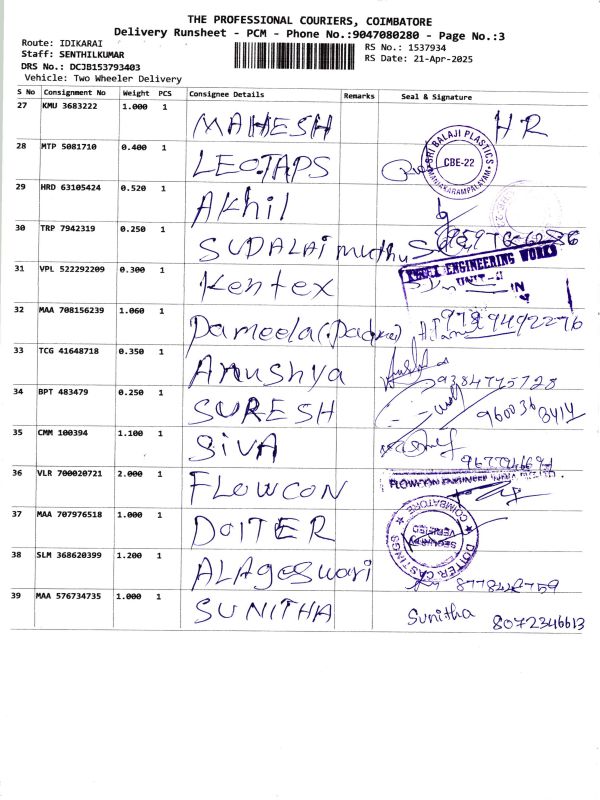 THE PROFESSIONAL COURIERS, COIMBATORE
Delivery Runsheet - PCM - Phone No.:9047080280 - Page No.:3
Route: IDIKARAI
RS No.: 1537934
Staff: SENTHILKUMAR
RS Date: 21-Apr-2025
DRS No.: DCJB153793403
Vehicle: Two Wheeler Delivery
S No Consignment No Weight PCS Consignee Details Remarks Seal & Signature
27 KMU 3683222 1.000 1 MAHESH HR
28 MTP 5081710 0.400 1 LEOTAPS
SRI BALAJI PLASTICS
CBE-22
29 HRD 63105424 0.520 1 Akhil
30 TRP 7942319 0.250 1 SUDALAI muthu
31 VPL 522292209 0.300 1 Kentex
ENGINEERING WORKS
UNIT-II
32 MAA 708156239 1.060 1 Pameela
33 TCG 41648718 0.350 1 Anushya 9384775728
34 BPT 483479 0.250 1 SURESH 9600363414
35 CMM 100394 1.100 1 SIVA
36 VLR 700020721 2.000 1 FLOWCON
FLOWCON
37 MAA 707976518 1.000 1 DOITER
COIMBATORE
SECURITY
VERIFIED
DOITER CASTINGS
38 SLM 368620399 1.200 1 ALAgeswari
39 MAA 576734735 1.000 1 SUNITHA Sunitha 8072346613